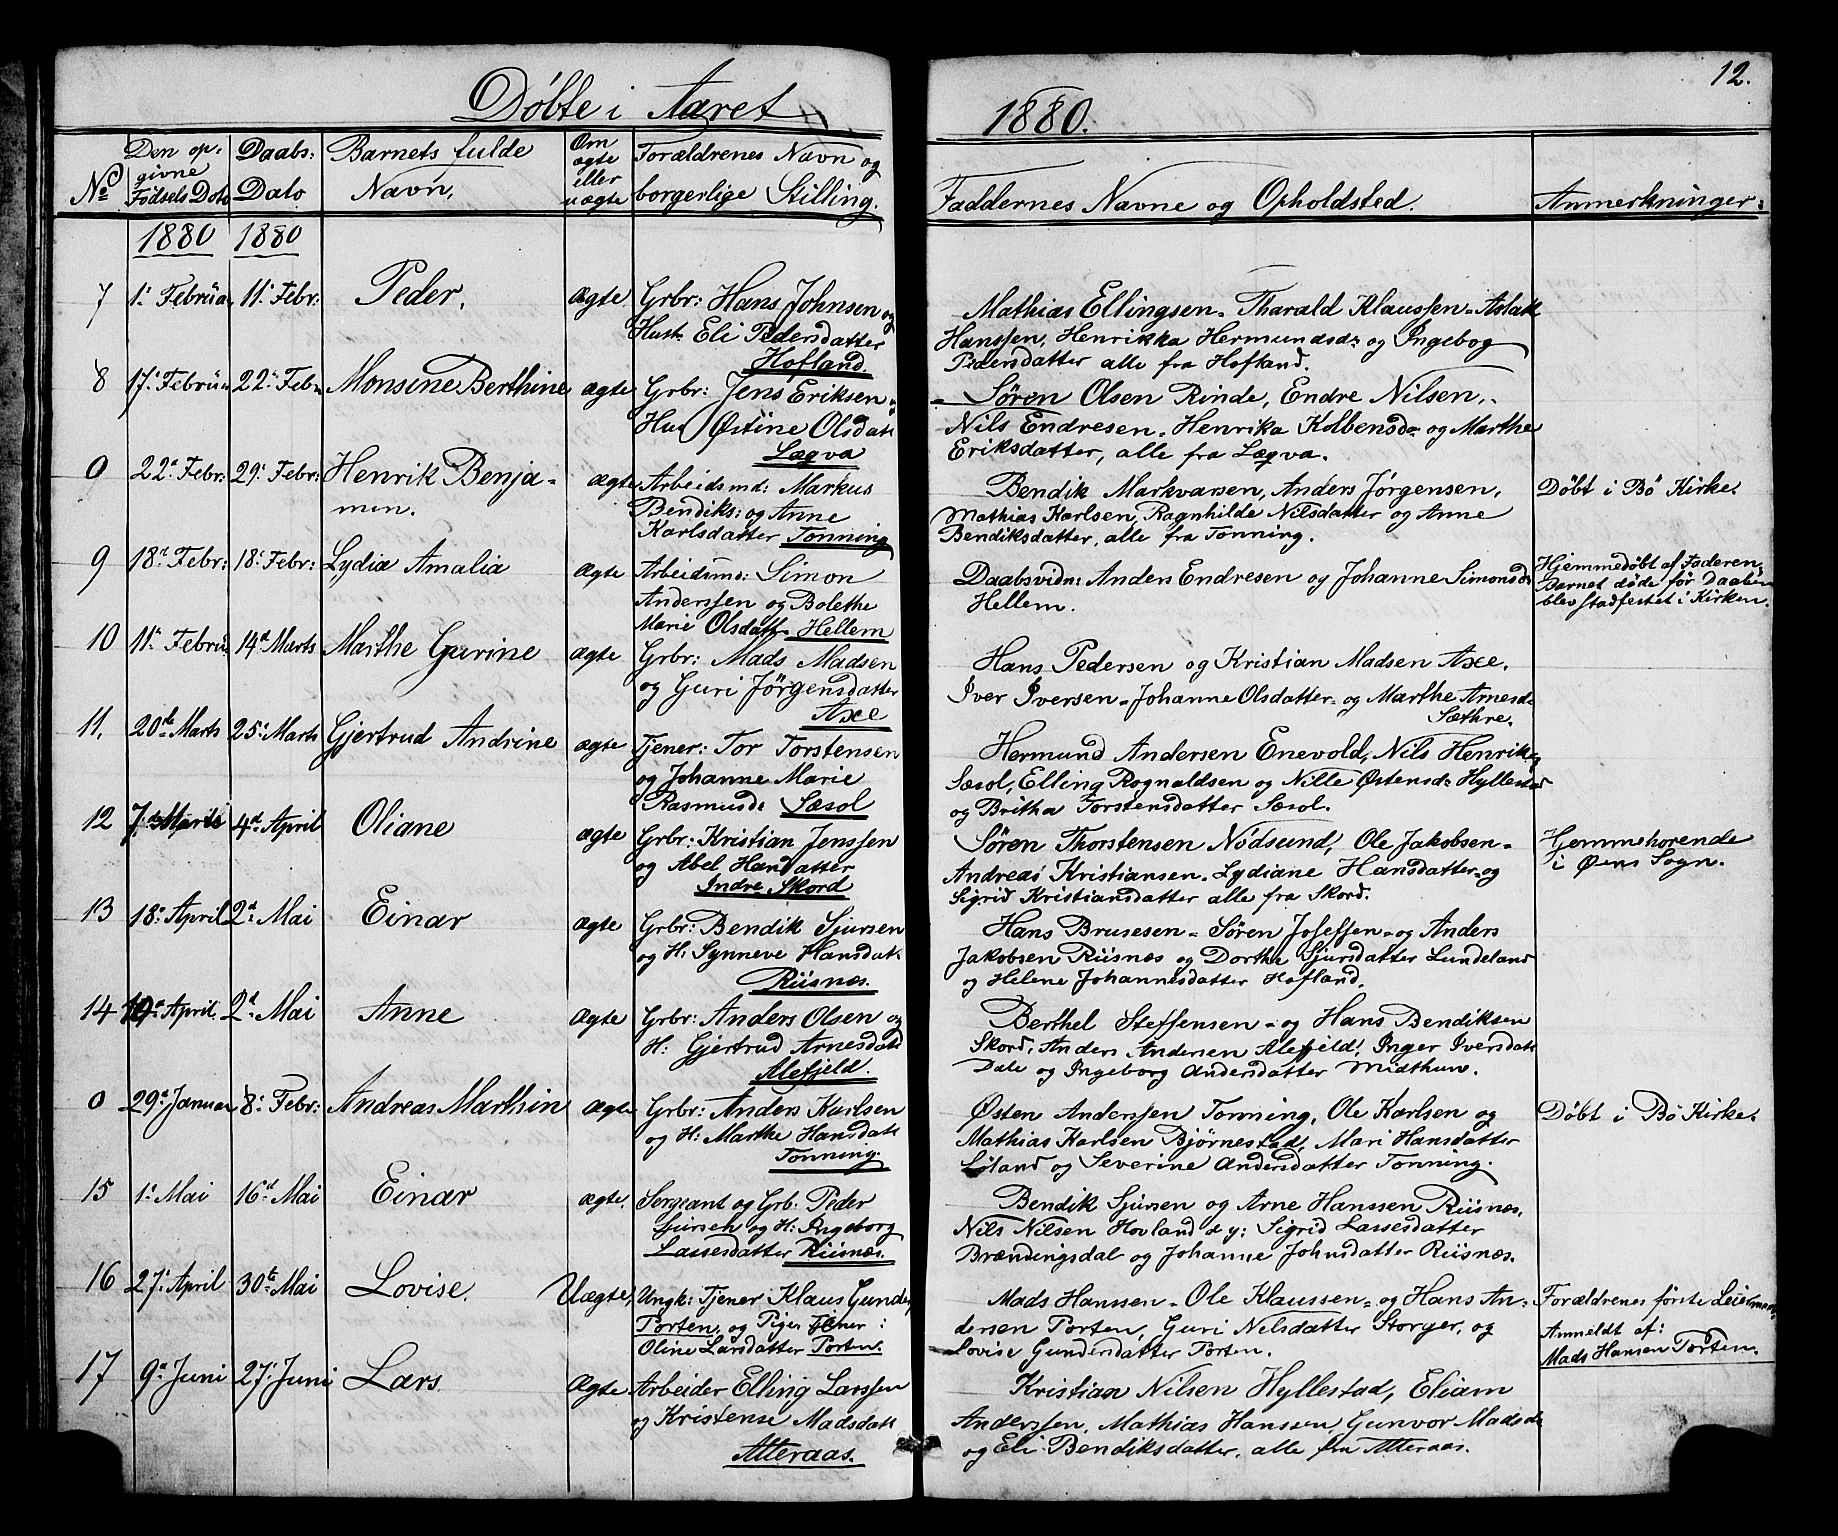 12.
Døbte i Aaret 1880.
No
Den op-
givne
Fødsels Dato
Daabs-
Dato
Barnets fulde
Navn,
Om
ægte
eller
uægte
Forældrenes Navn og
borgerlige Stilling.
Faddernes Navne og Opholdsted.
Anmerkninger:
1880 1880
7 1ᵗ Februar 11ᵗ Febr: Peder, ægte Grbr: Hans Johnsen og
Hust: Eli Pedersdatter
Hofland.
Mathias Ellingsen - Tharald Klaussen - Aslak
Hanssen, Henrikka Hermundsd: og Ingebog
Pedersdatter alle fra Hofland.
8 17ᵗ Februar 22ᵗ Febr Monsine Berthine ægte Grbr: Jens Eriksen -
Hus Østine Olsdatt
Lægva
Søren Olsen Rinde, Endre Nilsen,
Nils Endresen - Henrika Kolbensd: og Marthe
Eriksdatter, alle fra Lægva.
0 22ᵈ Febr: 29ᵗ Febr: Henrik Benja-
min. ægte Arbeidsmd: Markus
Bendiks: og Anne
Karlsdatter Tonning
Bendik Markvarsen, Anders Jørgensen,
Mathias Karlsen, Ragnhilde Nilsdatter og Anne
Bendiksdatter, alle fra Tonning.
Døbt i Bö Kirke.
9 18ᵗ Febr: 18ᵗ Febr: Lydia Amalia ægte Arbeidsmd: Simon
Anderssen og Bolethe
Marie Olsdatt Hellem
Daabsvidn: Anders Endresen og Johanne Simonsd:
Hellem.
Hjemmedøbt af Faderen
Barnet døde før Daaben
blev stadfestet i Kirken.
10 11ᵗ Februa 14ᵈ Marts Marthe Gurine ægte Grbr: Mads Madsen
og Guri Jörgensdatter
Axe
Hans Pedersen og Kristian Madsen Axe.
Iver Iversen - Johanne Olsdatter - og Marthe Arnesd:
Sæthre.
11. 20de Marts 25ᵗ Marts Gjertrud Andrine ægte Tjener: Tor Torstensen
og Johanne Marie
Rasmusd: Sæsol
Hermund Andersen Enevold, Nils Henriks
Sæsol, Elling Rognaldsen og Nille Østensd: Hyllestad
og Britha Torstensdatter Sæsol.
12 7de Marts 4ᵈ April Oliane ægte Grbr: Kristian Jenssen
og Abel Hansdatter
Indre Skord
Søren Thorstensen Nödsund, Ole Jakobsen -
Andreas Kristiansen - Lydiane Hansdatter - og
Sigrid Kristiansdatter alle fra Skord.
Hjemmehorende
i Øens Sogn.
13 18ᵗ April 2ᵈ Mai Einar ægte Grbr: Bendik Sjursen
og H: Synneve Hansdatt
Riisnæs.
Hans Brusesen - Søren Josefsen - og Anders
Jakobsen Riisnæs og Dorthe Sjursdatter Lundeland
og Helene Johannesdatter Hofland.
14 19ᵈ April 2ᵈ Mai Anne ægte Grbr: Anders Olsen og
H: Gjertrud Arnesdatt
Alefjeld.
Berthel Steffensen - og Hans Bendiksen
Skord, Anders Andersen Alefjeld, Inger Iversdatt
Dale og Ingeborg Andersdatter Midthun.
0 29ᵈ Januar 8ᵗ Febr: Andreas Marthin ægte Grbr: Anders Karlsen
og H: Marthe Hansdatt
Tonning.
Østen Anderssen Tonning, Ole Karlsen og
Mathias Karlsen Bjørnestad, Mari Hansdatter
Løland og Severine Andersdatter Tonning.
Døbt i Bö Kirke.
15 1ᵗ Mai 16ᵈ Mai Einar ægte, Sergeant og Grb: Peder
Sjursen og H: Ingeborg
Lassesdatter Riisnæs.
Bendik Sjursen og Arne Hanssen Riisnæs,
Nils Nilsen Hovland d y: Sigrid Lassesdatter
Brændingsdal og Johanne Johnsdatter Riisnæs.
16 27ᵗ April 30te Mai Lovise. Uægte, Ungk: Tjener Klaus Gunders
Porten, og Pige Tjener:
Oline Larsdatter Porten.
Mads Hanssen - Ole Klaussen - og Hans An-
dersen Porten, Guri Nelsdatter Storger, og
Lovise Gundersdatter Porten.
Forældrenes første Leiermaal
Anmeldt af:
Mads Hansen Porten.
17 9ᵈ Juni 27ᵗ Juni Lars. ægte Arbeider Elling Larssen
og Kristense Madsdatt
Atteraas.
Kristian Nilsen Hyllestad, Eliam
Anderssen, Mathias Hanssen, Gunvor Madsd:
og Eli Bendiksdatter, alle fra Atteraas.